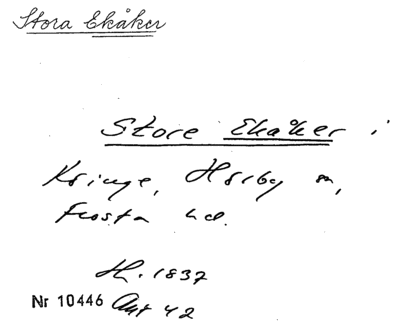 Stora Ekåker
Store Ekåker i
Kringe, Hörby sn,
Frosta hd.
H. 1837
Nr 10446 Akt 42